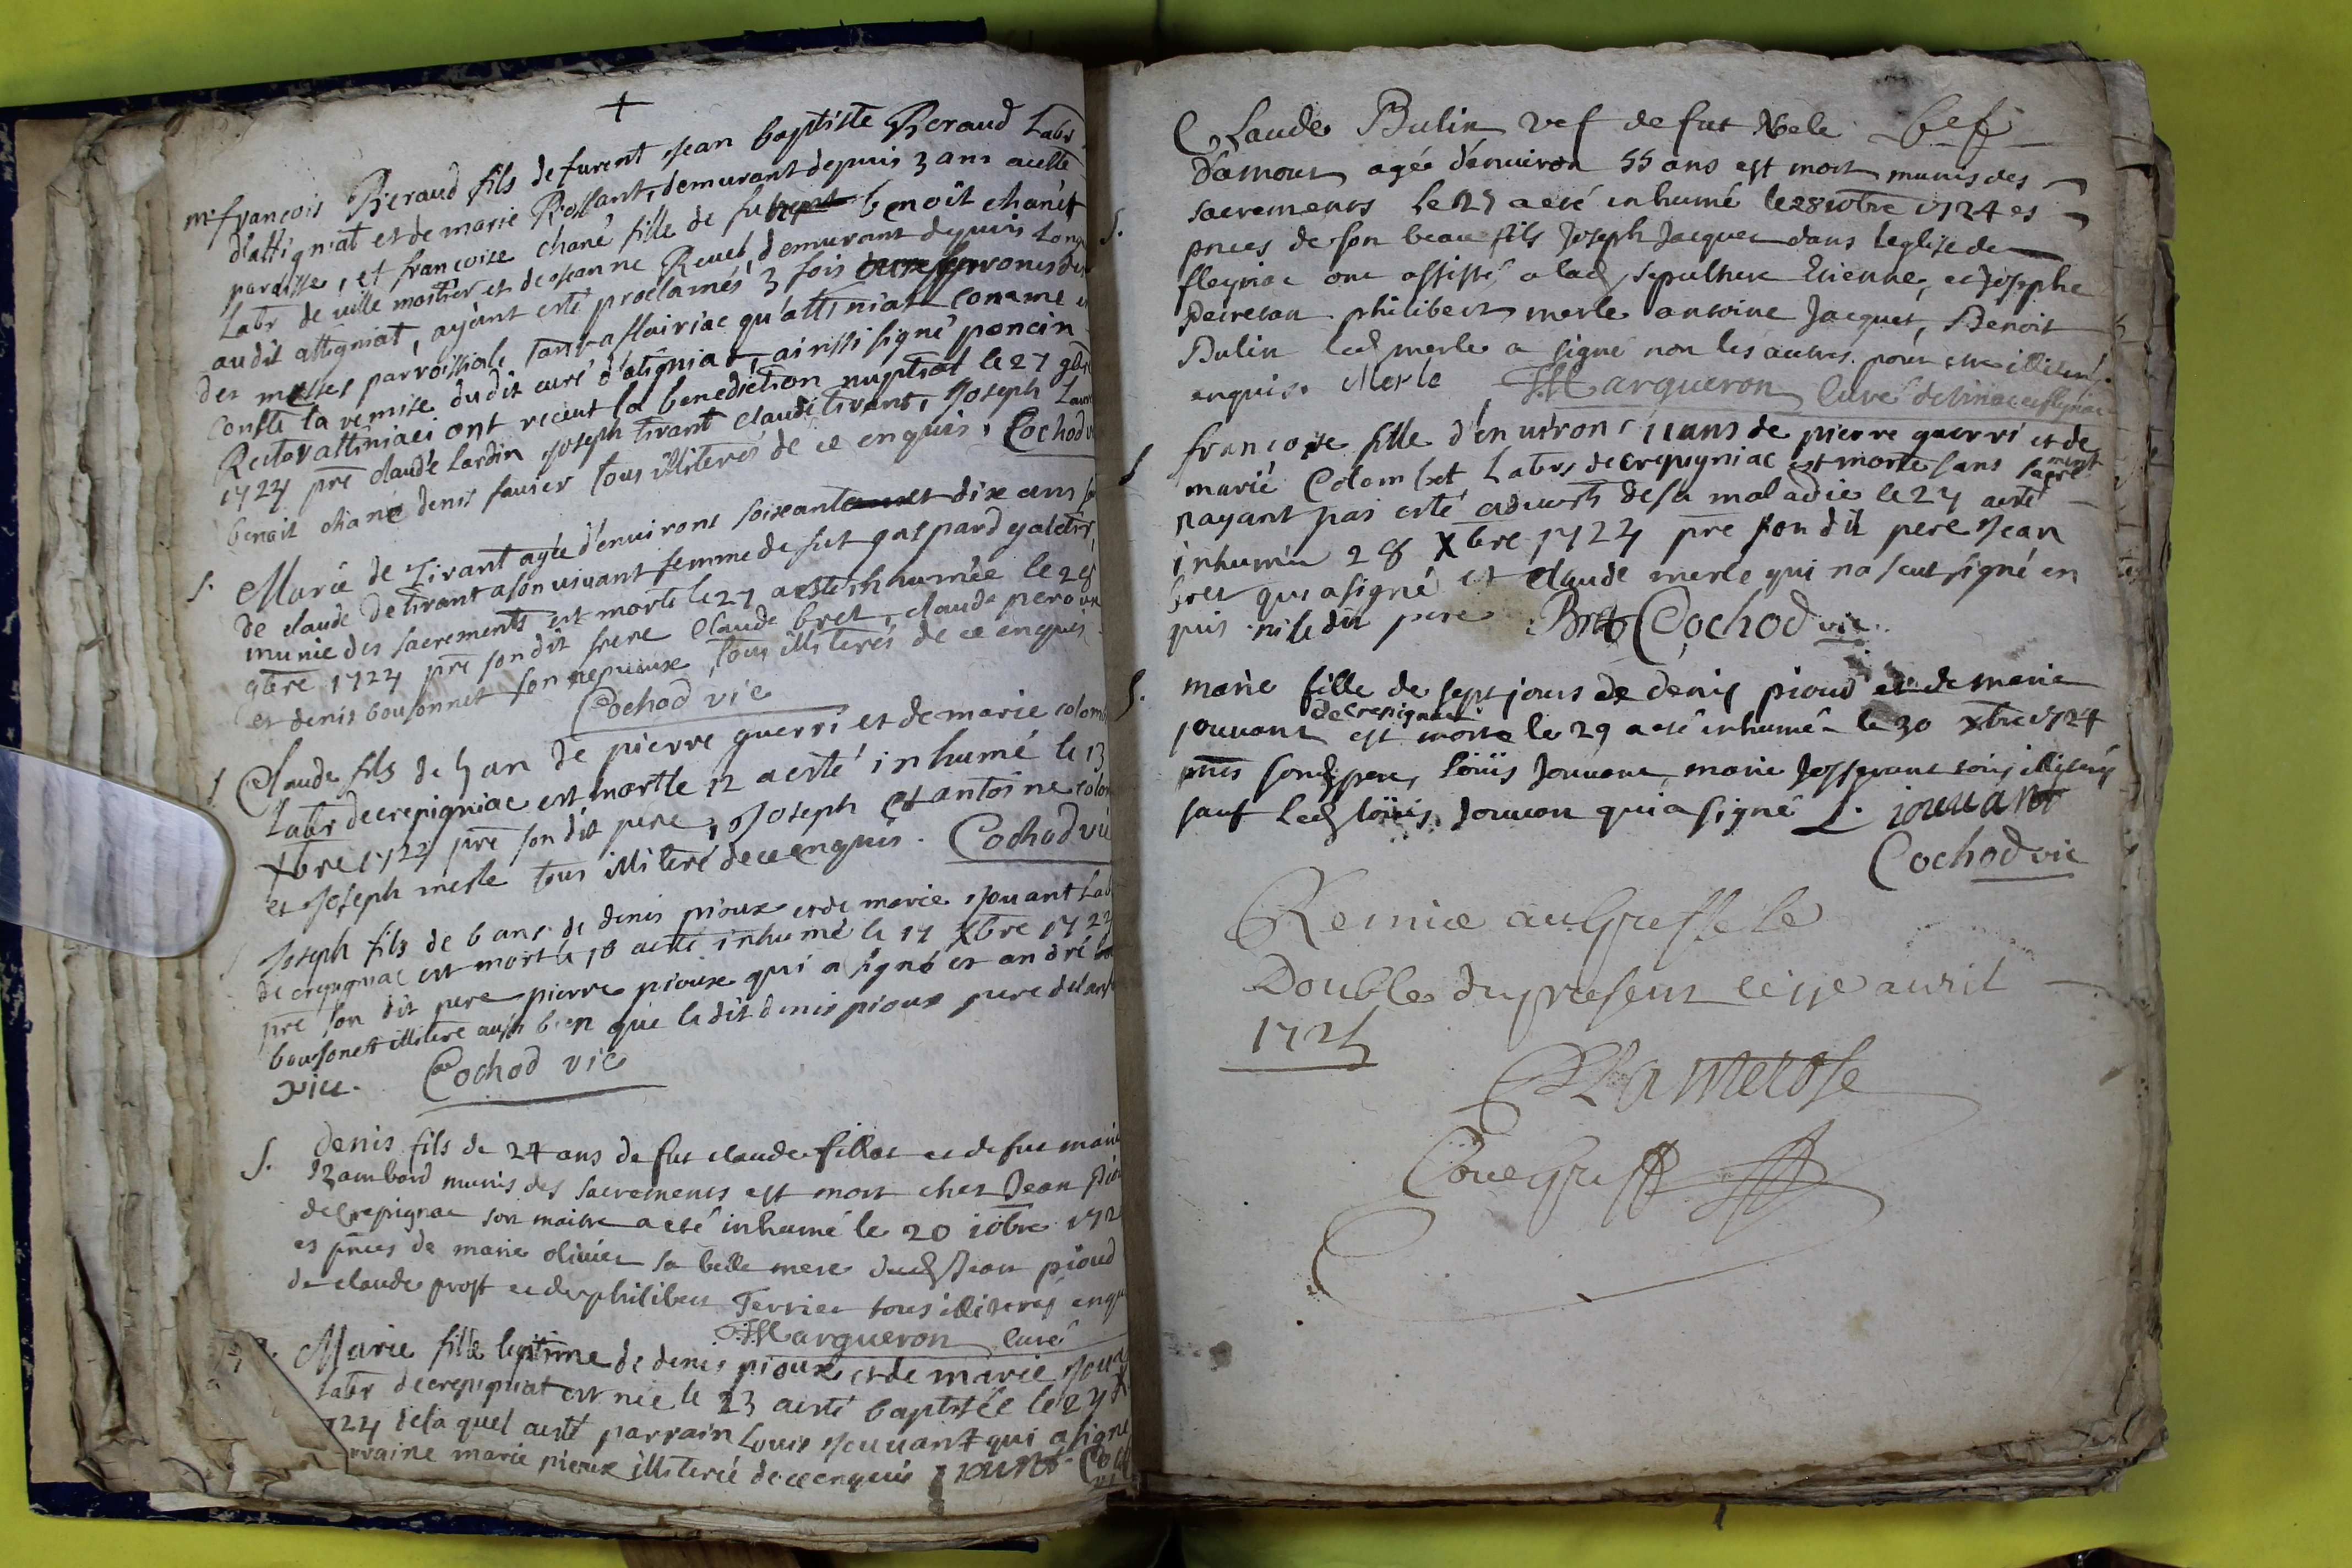 +
m. françois Beraud fils de furent jean baptiste Beraud Labr
d'attigniat et de marie Rossant, demurant depuis 3 ans au
paroisse, et françoise chané fille de fu benoit chanet
Labr de ville mostier et de jeanne Revet demurant depuis Long
audit attigniat, ayant esté proclamés 3 fois
des messes parroissial, tant a flairiac qu'attiniat comme
conste la remise dudit curé d'atigniat, ainssi signé poncin
Rector attiniaci ont receut la benediction nuptial le 27 9bre
1724 pre claude Lardin joseph tirant claude tirant, joseph
benoit chané denis favier tous illiterés de ce enquis. Cochod
S. Marie de Tirant agée d'environt soixante et dix ans
de claude de tirant a son vivant femme de fut gaspard
munie des sacrements est morte le 27 a esté inhumée le 28
9bre 1724 pre son dit frere claude bret, claude
et denis bousonnet son nepveux tous illiterés de ce enquis
Cochod vic
S Claude fils de 5 an de pierre guerri et de marie colom
Labr de crepigniac est mort le 12 a esté inhumé le 13
xbre 1724 pre son dit pere, joseph et antoine colom
et joseph merle tous illiteré de ce enquis. Cochod vic
Joseph fils de 6 ans de denis pioux et de marie jouant Lab
de crepigniac est mort le 16 a esté inhumé le 17 xbre 1724
pre son dit pere pierre pioux qui a signé et andré
bousonet illiteré aussi bien que le dit denis pioux pere
Cochod vic
S. Denis fils de 24 ans de fut claude fillot et de fut marie
Rambord munis des sacrements est mort chez Jean
de Crepignac son maitre a eté inhumé le 20 10bre 172
es pnces de marie olivier sa belle mere dud Jean pioud
de claude prost et de philibert Ferrier tous illiteres enq
Margueron Curé
Marie fille legitime de denis pioux, et de marie joua
Labr de crepigniat est née le 23 a esté baptisée le 24
724 de la quel a esté parrain Louis jouuant qui a signé
rraine marie pioux illiterée de ce enquis jouant Co
Claude Bulin vef de fut Noele
Damour agée d'environ 55 ans est mort munis des
sacrements le 27 a eté inhumé le 28 10bre 1724 es
pnces de son beau fils Joseph Jacquet dans leglise de
fleyriac ont assisté a lad sepulture Etienne, et Josephe
Decretan philibert merle antoine Jacquet, Benoit
Bulin led merle a signé non les autres pour estre illiterés
enquis. Merle Margueron Curé
S françoise fille d'environt 11 ans de pierre guerri et de
marie Colombet Labrs de crepigniac est morte sans sacrement
nayant pas esté adverti de sa maladie le 27 a esté
inhumée 28 Xbre 1724 pre son dit pere jean
bret qui a signé et claude merle qui na sceut signé en
quis ni le dit pere Bret Cochod vic
S. marie fille de sept jours de denis pioud et de marie
jouuant de Crepignac est morte le 29 a eté inhumé le 30 xbre 1724
pnts sond pere, loüis Jouuant, marie tous illiterés
sauf led loüis Jouuon qui a signé L. iouuant
Cochod vic
Remise au Greffe le
Double du present ce avril
172
Couegreff